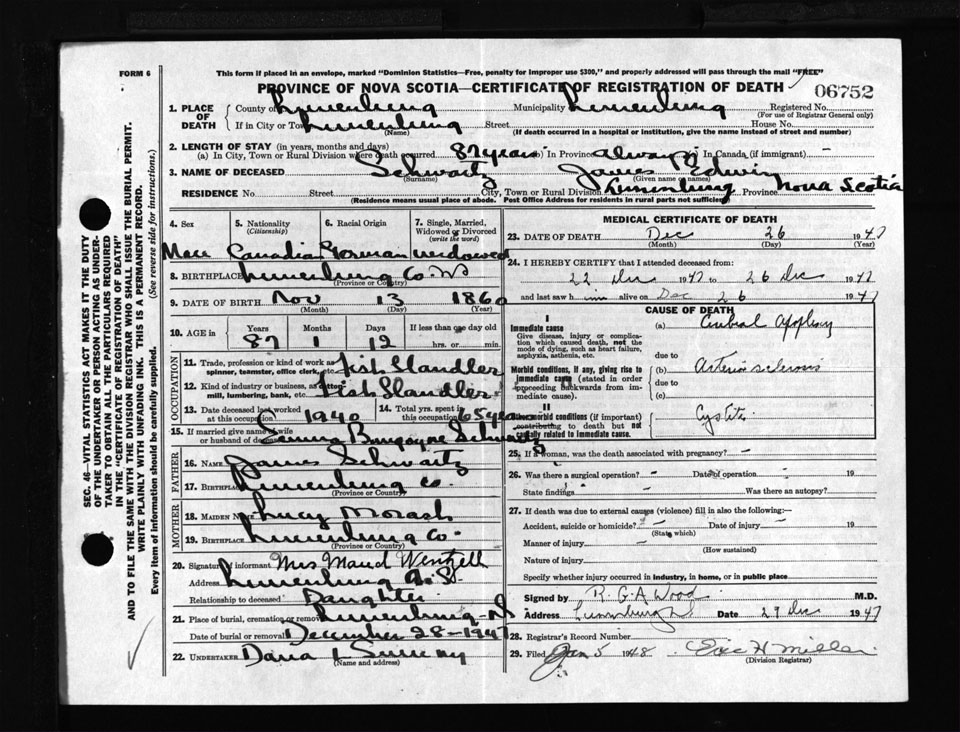 FORM 6
This form if placed in an envelope, marked "Dominion Statistics—Free, penalty for improper use $300," and properly addressed will pass through the mail "FREE"
PROVINCE OF NOVA SCOTIA—CERTIFICATE OF REGISTRATION OF DEATH
06752
1. PLACE OF DEATH
County of Lunenburg Municipality Lunenburg Registered No.
(For use of Registrar General only)
If in City or Town Lunenburg Street House No.
(Name) (If death occurred in a hospital or institution, give the name instead of street and number)
2. LENGTH OF STAY (in years, months and days)
(a) In City, Town or Rural Division where death occurred 87 years (b) In Province always In Canada (if immigrant) —
3. NAME OF DECEASED Schwartz James Edwin
(Surname) (Given name or names)
RESIDENCE No Street City, Town or Rural Division Lunenburg Province Nova Scotia
(Residence means usual place of abode. Post Office Address for residents in rural parts not sufficient)
4. Sex 5. Nationality (Citizenship) 6. Racial Origin 7. Single, Married, Widowed or Divorced (write the word)
Male Canadian German widowed
8. BIRTHPLACE Lunenburg Co NS
(Province or Country)
9. DATE OF BIRTH Nov 13 1860
(Month) (Day) (Year)
10. AGE in Years Months Days If less than one day old
87 1 12 hrs. or min.
OCCUPATION
11. Trade, profession or kind of work as spinner, teamster, office clerk, etc. Fish Handler
12. Kind of industry or business, as mill, lumbering, bank, etc. Fish Handler
13. Date deceased last worked at this occupation 1940 14. Total yrs. spent in this occupation 65 years
15. If married give name of wife or husband of deceased Burgoyne Schwartz
FATHER
16. NAME James Schwartz
17. BIRTHPLACE Lunenburg Co.
(Province or Country)
MOTHER
18. MAIDEN NAME Lucy Morash
19. BIRTHPLACE Lunenburg Co.
(Province or Country)
20. Signature of informant Mrs Maud Wentzell
Address Lunenburg N.S.
Relationship to deceased Daughter
21. Place of burial, cremation or removal Lunenburg NS
Date of burial or removal December 28—1947
22. UNDERTAKER
(Name and address)
MEDICAL CERTIFICATE OF DEATH
23. DATE OF DEATH Dec 26 1947
(Month) (Day) (Year)
24. I HEREBY CERTIFY that I attended deceased from:
22 Dec 1947 to 26 Dec 1947
and last saw him alive on Dec 26 1947
CAUSE OF DEATH
I
Immediate cause
Give disease, injury or complication which caused death, not the mode of dying, such as heart failure, asphyxia, asthenia, etc.
(a) Cerebral Apoplexy
due to
Morbid conditions, if any, giving rise to immediate cause (stated in order proceeding backwards from immediate cause).
(b) Arterio sclerosis
due to
(c)
II
Other morbid conditions (if important) contributing to death but not causally related to immediate cause.
Cystitis
25. If a woman, was the death associated with pregnancy? —
26. Was there a surgical operation? — Date of operation — 19
State findings — Was there an autopsy?
27. If death was due to external causes (violence) fill in also the following:—
Accident, suicide or homicide? — Date of injury — 19
(State which)
Manner of injury —
(How sustained)
Nature of injury
Specify whether injury occurred in industry, in home, or in public place
Signed by R. G. A. Wood M.D.
Address Lunenburg Date 29 Dec 1947
28. Registrar's Record Number
29. Filed Jan 5 1948 Eric H Miller
(Division Registrar)
SEC. 46—VITAL STATISTICS ACT MAKES IT THE DUTY
OF THE UNDERTAKER OR PERSON ACTING AS UNDER-
TAKER TO OBTAIN ALL THE PARTICULARS REQUIRED
IN THE "CERTIFICATE OF REGISTRATION OF DEATH"
AND TO FILE THE SAME WITH THE DIVISION REGISTRAR WHO SHALL ISSUE THE BURIAL PERMIT.
WRITE PLAINLY WITH UNFADING INK. THIS IS A PERMANENT RECORD.
Every item of information should be carefully supplied. (See reverse side for instructions.)